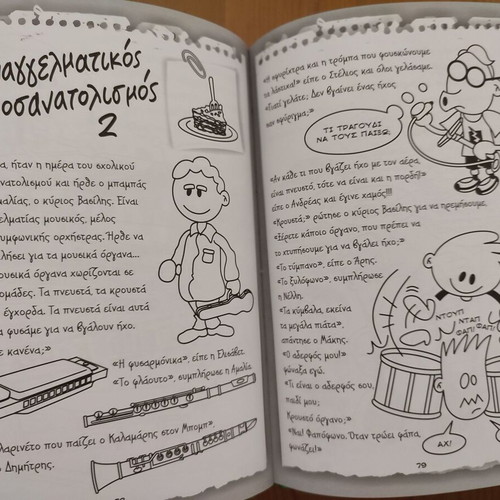 αγγελματικός
οσανατολισμός
2
α, ήταν η ημέρα του σχολικού
ανατολισμού και ήρθε ο μπαμπάς
μαλίας, ο κύριος Βασίλης. Είναι
ελματίας μουσικός, μέλος
υμφωνικής ορχήστρας. Ήρθε να
λήσει για τα μουσικά όργανα...
ουσικά όργανα χωρίζονται σε
ομάδες. Τα πνευστά, τα κρουστά
έγχορδα. Τα πνευστά είναι αυτά
α φυσάμε για να βγάλουν ήχο.
ε κανένα;»
«Η φυσαρμόνικα», είπε η Ελισάβετ.
«Το φλάουτο», συμπλήρωσε η Αμαλία.
λαρινέτο που παίζει ο Καλαμάρης στον Μπομπ».
Δημήτρης.
«Η σφυρίχτρα και η τρόμπα που φουσκώνουμε
τα λάστιχα!» είπε ο Στέλιος και όλοι γελάσαμε.
«Γιατί γελάτε; Δεν βγαίνει ένας ήχος
σαν σφύριγμα;»
ΤΙ ΤΡΑΓΟΥΔΙ
ΝΑ ΤΟΥΣ ΠΑΙΞΩ;
«Αν κάθε τι που βγάζει ήχο με τον αέρα,
είναι πνευστό, τότε να είναι και η πορδή!»
είπε ο Ανδρέας και έγινε χαμός!!!
«Κρουστά;» ρώτησε ο κύριος Βασίλης για να ηρεμήσουμε.
«Ξέρετε κάποιο όργανο, που πρέπει να
το χτυπήσουμε για να βγάλει ήχο;»
«Το τύμπανο», είπε ο Άρης.
«Το ξυλόφωνο», συμπλήρωσε
η Νέλλη.
«Τα κύμβαλα, εκείνα
τα μεγάλα πιάτα»,
απάντησε ο Μάκης.
«Ο αδερφός μου!»
φώναξα εγώ.
«Τι είναι ο αδερφός σου,
παιδί μου;
Κρουστό όργανο;»
«Ναι! Φαπόφωνο. Όταν τρώει φάπα,
φωνάζει!»
ΝΤΟΥΠ
ΦΑΠ!
ΝΤΑΠ
ΦΑΠ!
ΑΧ!
79